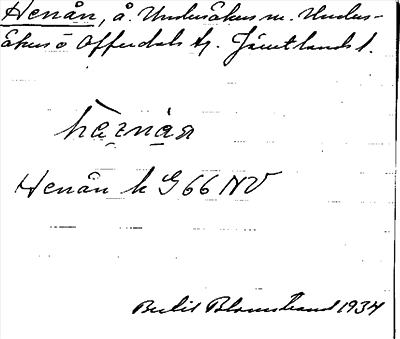 Henån, å. Undersåkers sn. Unders-
åkers o Offerdals tg. Jämtlands l.
Henån k G 66 NV
Berit Blomstrand 1934